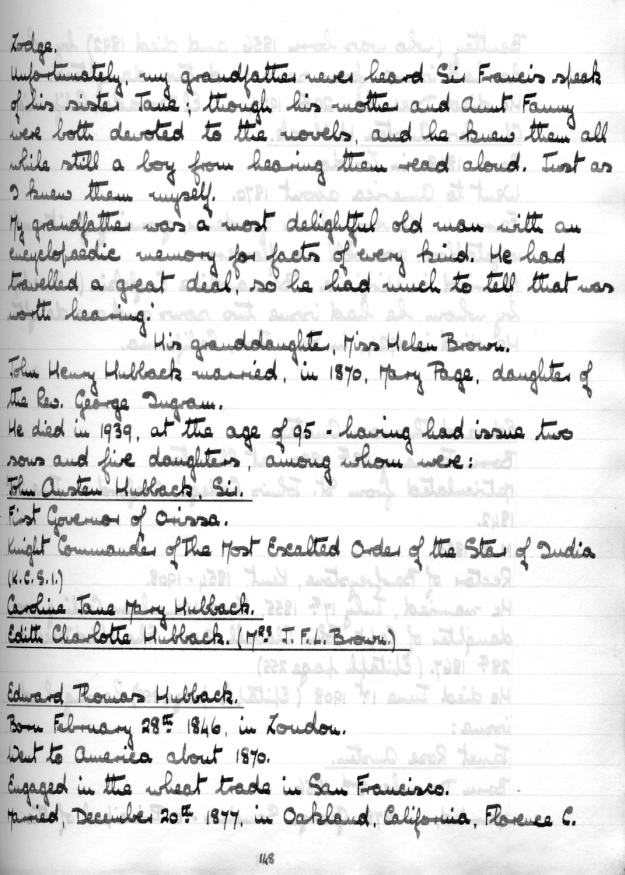 Lodge.
Unfortunately, my grandfather never heard Sir Francis speak
of his sister Jane; though his mother and Aunt Fanny
were both devoted to the novels, and he knew them all
while still a boy from hearing them read aloud. Just as
I knew them myself.
My grandfather was a most delightful old man with an
encyclopaedic memory for facts of every kind. He had
travelled a great deal, so he had much to tell that was
worth hearing.'
His granddaughter, Miss Helen Brown.
John Henry Hubback married, in 1870, Mary Page, daughter of
the Rev. George Ingram.
He died in 1939, at the age of 95 - having had issue two
sons and five daughters, among whom were:
John Austen Hubback, Sir.
First Governor of Orissa.
Knight Commander of The Most Escalted Order of the Star of India
(K.C.S.I.)
Caroline Jane Mary Hubback.
Edith Charlotte Hubback. (Mrs J.F.L. Brown.)
Edward Thomas Hubback.
Born February 28th 1846, in London.
Went to America about 1870.
Engaged in the wheat trade in San Francisco.
Married, December 20th 1877, in Oakland, California, Florence C.
148